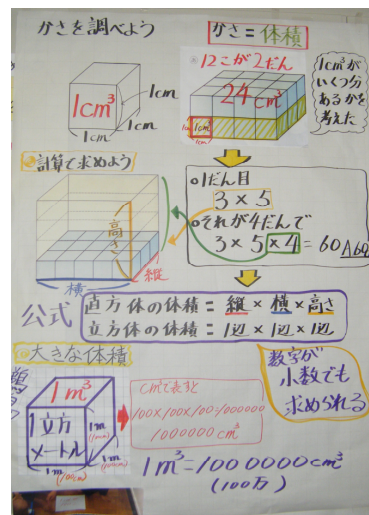 かさを調べよう
かさ=体積
1cm³
1cm
1cm
1cm
12こが2だん
24cm³
1cm³
1cm³が
いくつ分
あるかを
考えた
計算で求めよう
高さ
横
縦
○1だん目
3×5
○それが4だんで
3×5×4=60
公式
直方体の体積=縦×横×高さ
立方体の体積=1辺×1辺×1辺
大きな体積
数字が
小数でも
求められる
1m³
1立方
メートル
1m
(100cm)
1m
(100cm)
1m
(100cm)
cm³で表すと
100×100×100=1000000
1000000cm³
1m³=1000000cm³
(100万)